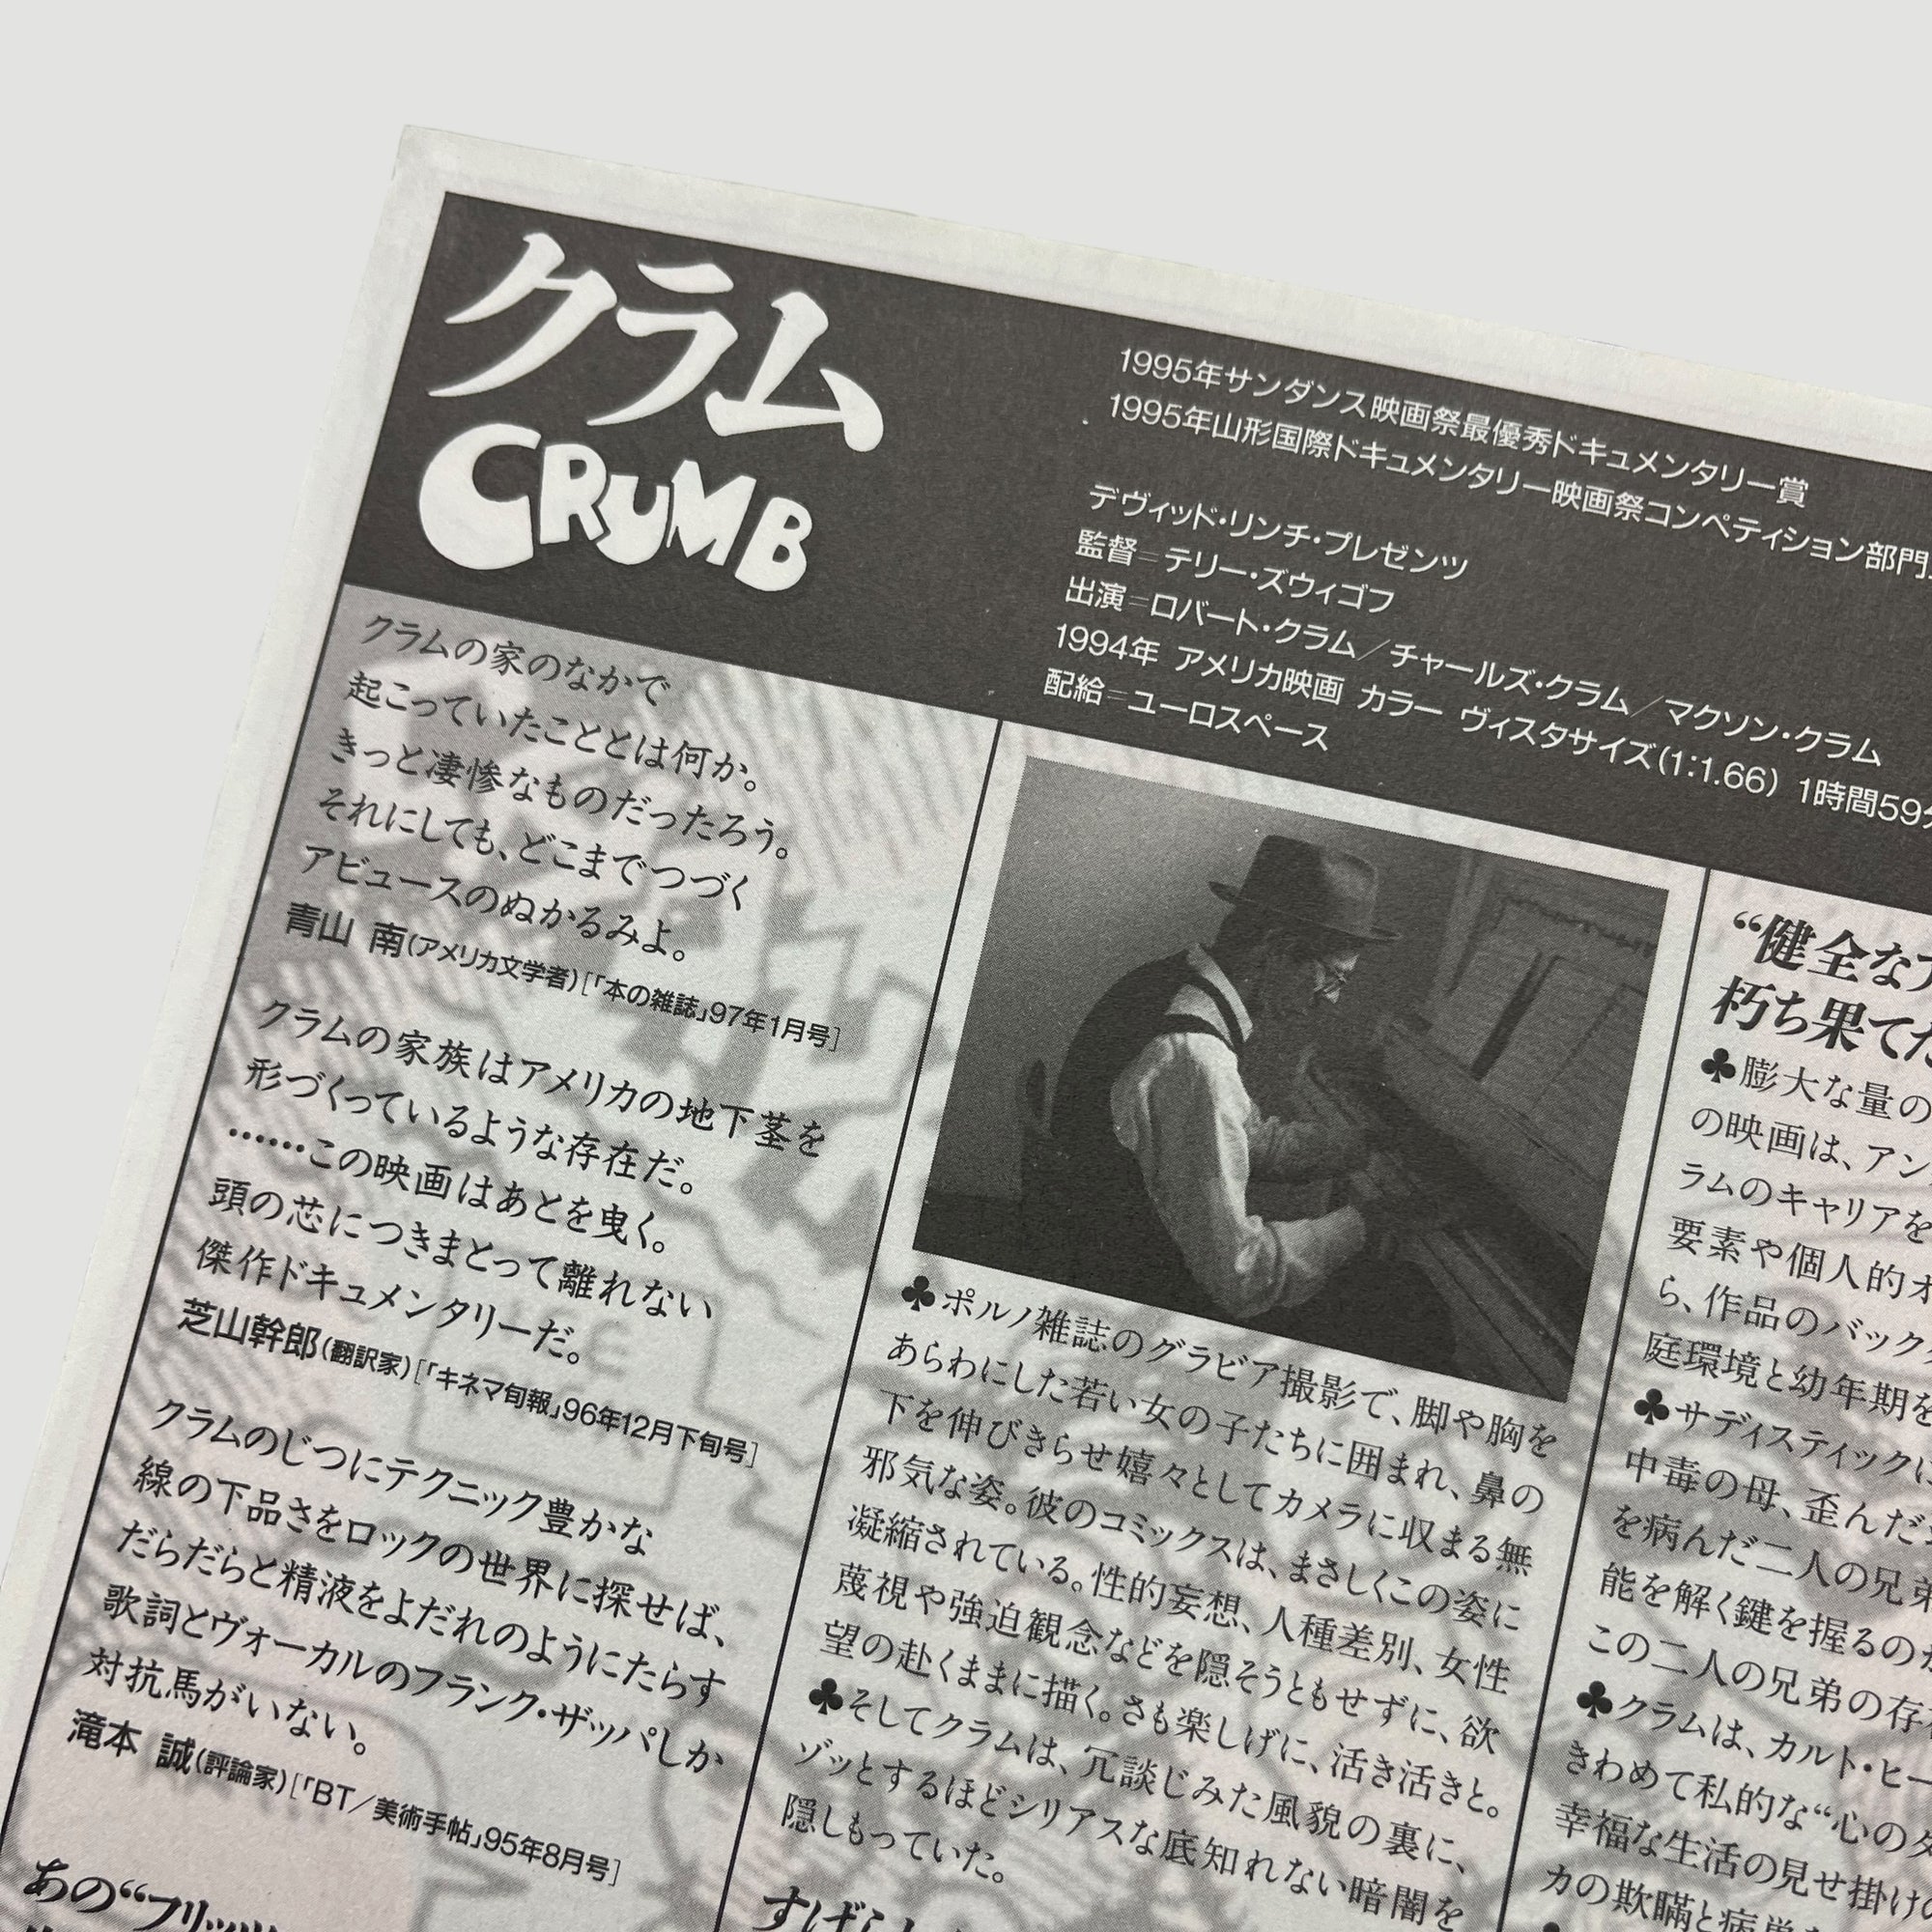 クラム
CRUMB
1995年サンダンス映画祭最優秀ドキュメンタリー賞
1995年山形国際ドキュメンタリー映画祭コンペティション部門
デヴィッド・リンチ・プレゼンツ
監督=テリー・ズウィゴフ
出演=ロバート・クラム／チャールズ・クラム／マクソン・クラム
1994年 アメリカ映画 カラー ヴィスタサイズ(1:1.66) 1時間59分
配給=ユーロスペース
クラムの家のなかで
起こっていたこととは何か。
きっと凄惨なものだったろう。
それにしても、どこまでつづく
アビュースのぬかるみよ。
青山 南(アメリカ文学者)[「本の雑誌」97年1月号]
クラムの家族はアメリカの地下茎を
形づくっているような存在だ。
……この映画はあとを曳く。
頭の芯につきまとって離れない
傑作ドキュメンタリーだ。
芝山幹郎(翻訳家)[「キネマ旬報」96年12月下旬号]
クラムのじつにテクニック豊かな
線の下品さをロックの世界に探せば、
だらだらと精液をよだれのようにたらす
歌詞とヴォーカルのフランク・ザッパしか
対抗馬がいない。
滝本 誠(評論家)[「BT／美術手帖」95年8月号]
あの“フリッツ
♣ポルノ雑誌のグラビア撮影で、脚や胸を
あらわにした若い女の子たちに囲まれ、鼻の
下を伸びきらせ嬉々としてカメラに収まる無
邪気な姿。彼のコミックスは、まさしくこの姿に
凝縮されている。性的妄想、人種差別、女性
蔑視や強迫観念などを隠そうともせずに、欲
望の赴くままに描く。さも楽しげに、活き活きと。
♣そしてクラムは、冗談じみた風貌の裏に、
ゾッとするほどシリアスな底知れない暗闇を
隠しもっていた。
すばらし
“健全なア
朽ち果てた
♣膨大な量の
の映画は、アン
ラムのキャリアを
要素や個人的オ
ら、作品のバック
庭環境と幼年期を
♣サディスティックに
中毒の母、歪んだ
を病んだ二人の兄弟
能を解く鍵を握るのが
この二人の兄弟の存
♣クラムは、カルト・ヒー
きわめて私的な“心のダ
幸福な生活の見せ掛けの
カの欺瞞と病